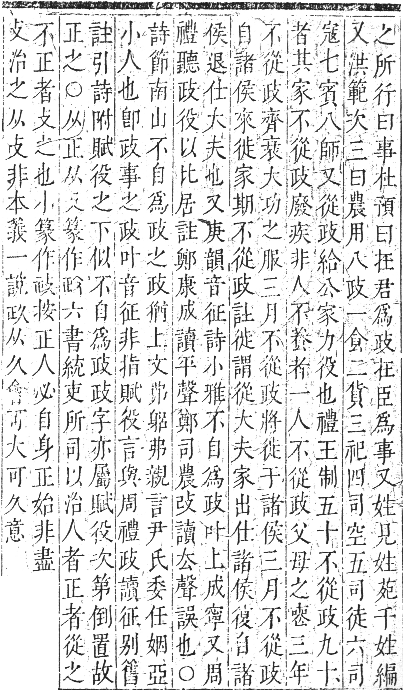 之所行曰事杜預曰在君爲政在臣爲事又姓見姓苑千姓編
又洪範次三曰農用八政一食二貨三祀四司空五司徒六司
寇七賓八師又從政給公家力役也禮王制五十不從政九十
者其家不從政廢疾非人不養者一人不從政父母之喪三年
不從政齊衰大功之服三月不從政將徙于諸侯三月不從政
自諸侯來徙家期不從政註徙謂從大夫家出仕諸侯復自諸
侯退仕大夫也又庚韻音征詩小雅不自爲政叶上成寧又周
禮聽政役以比居註鄭康成讀平聲鄭司農政讀去聲誤也○
詩節南山不自爲政之政猶上文弗躬弗親言尹氏委任姻亞
小人也卽政事之政叶音征非指賦役言與周禮政讀征別舊
註引詩附賦役之下似不自爲政政字亦屬賦役次第倒置故
正之○从正从又篆作政六書統吏所司以治人者正者從之
不正者攴之也小篆作政按正人必自身正始非盡
攴治之从攴非本義一說政从久會可大可久意